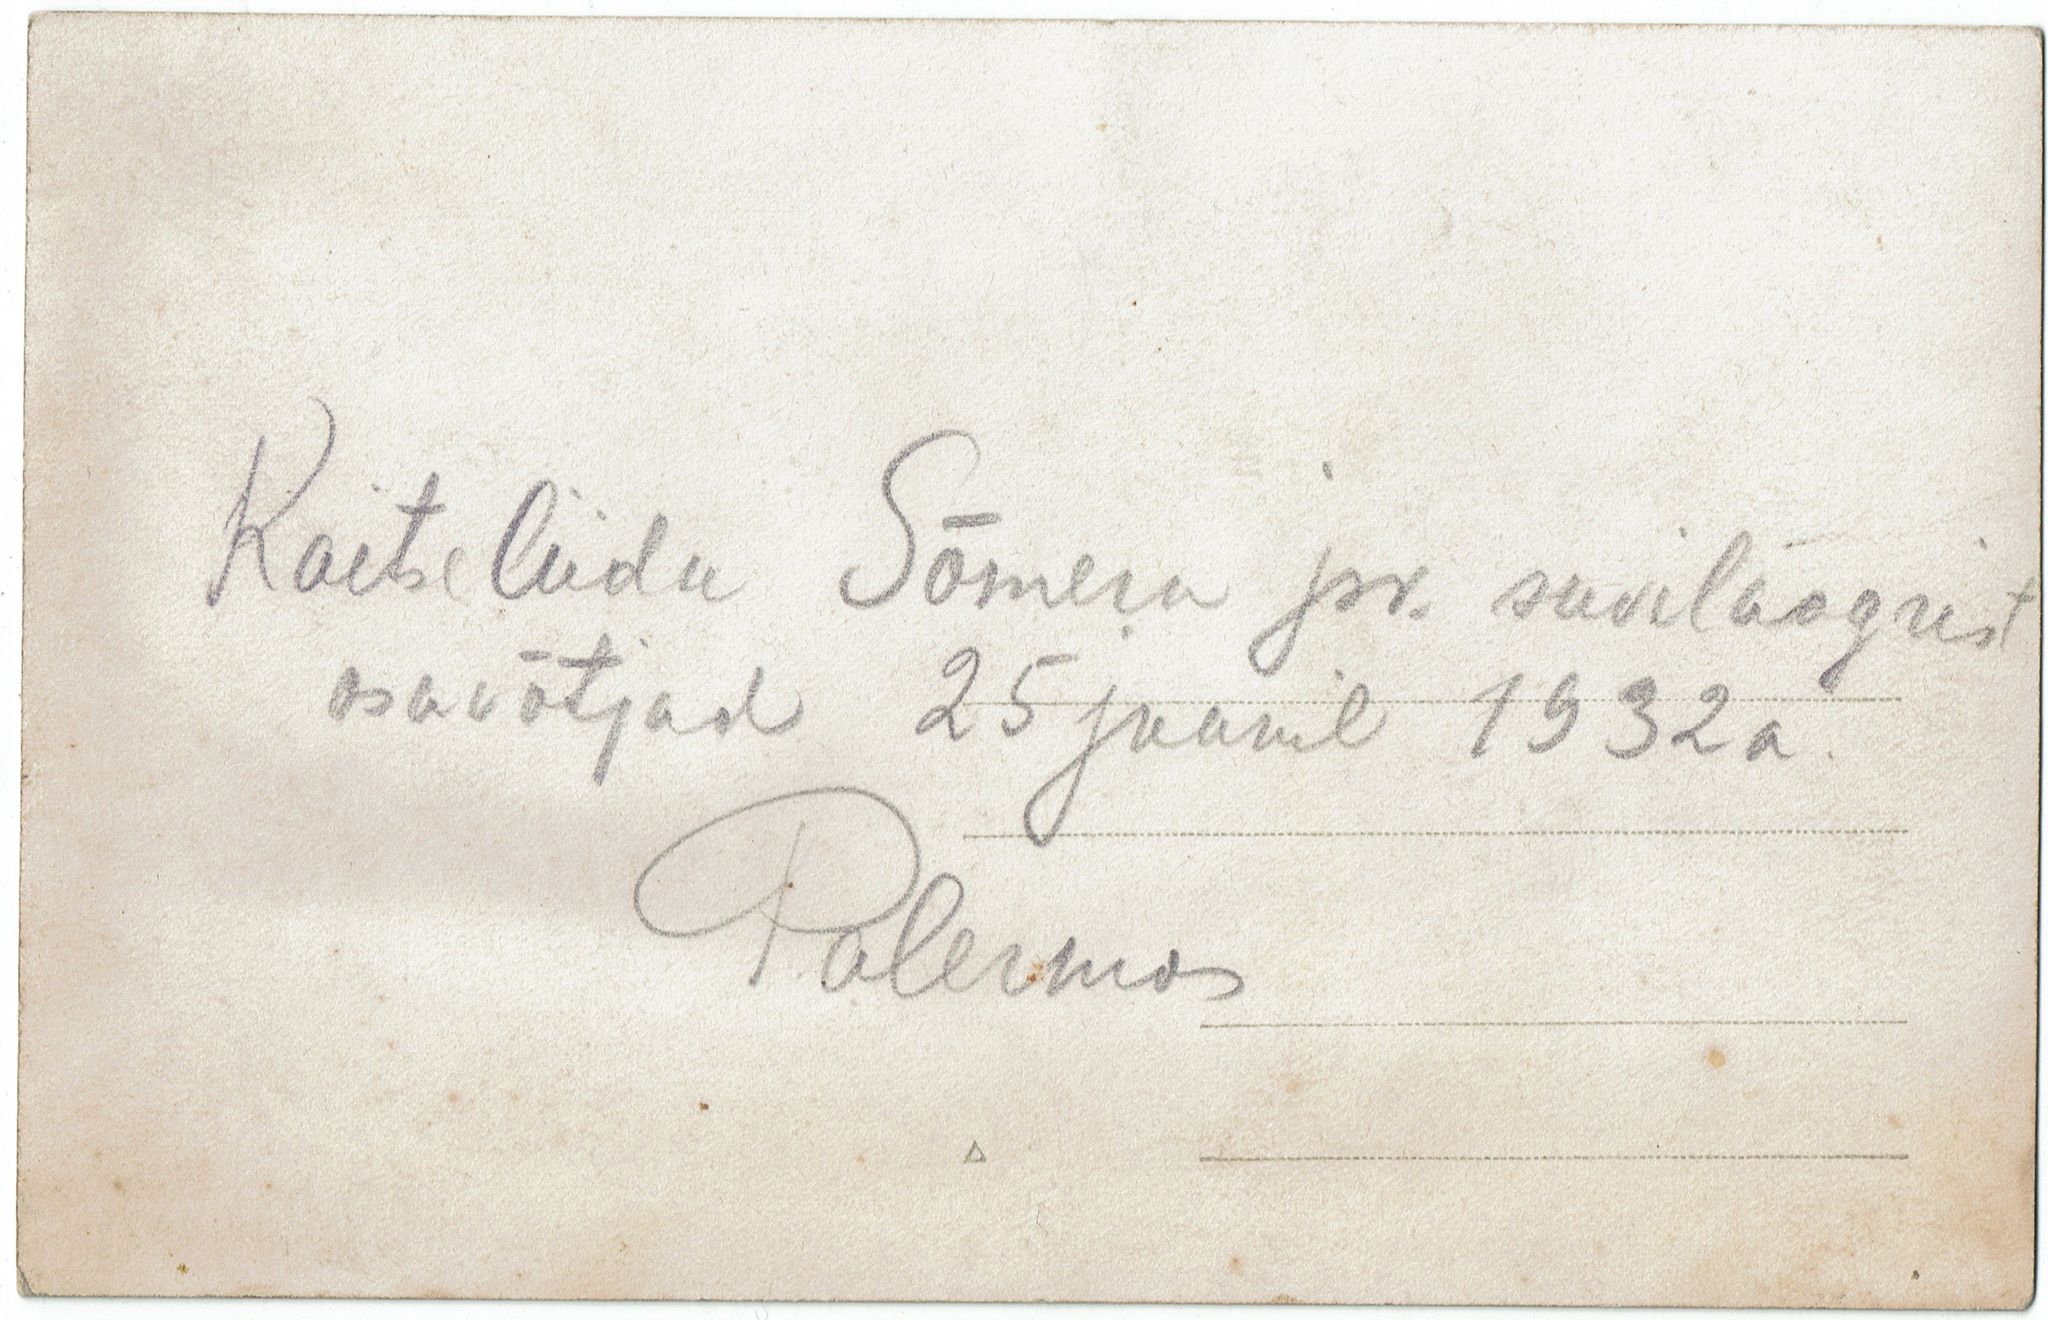 Kaitseliidu Sõmeru jsk. suvilaagrist
osavõtjad 25 juunil 1932 a.
Palermos